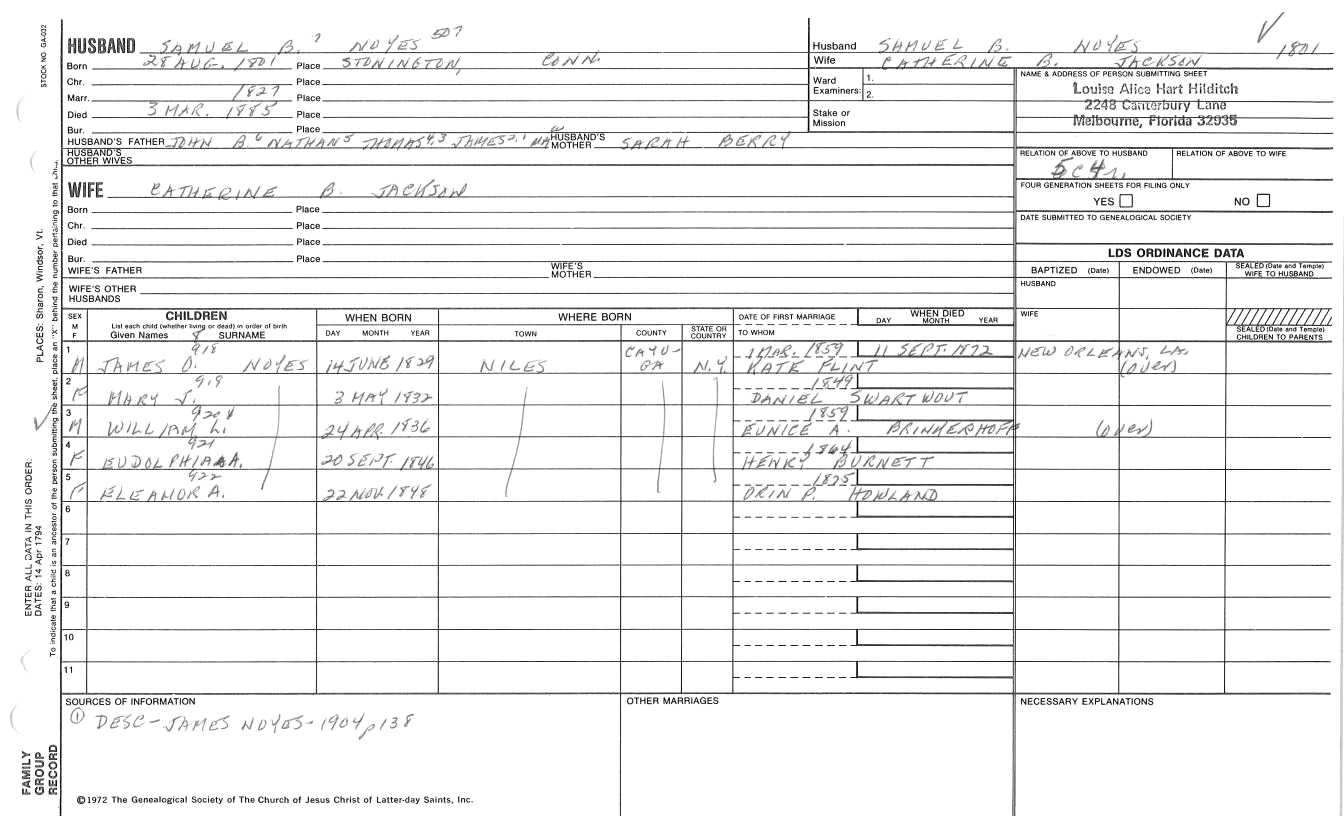 STOCK NO GA-032
HUSBAND SAMUEL B. 7 NOYES 507
Born 28 AUG. 1801 Place STONINGTON, CONN.
Chr. Place
Marr. 1827 Place
Died 3 MAR. 1885 Place
Bur. Place
HUSBAND'S FATHER JOHN B.6 NATHAN5 THOMAS4,3 JAMES2,1 HUSBAND'S MOTHER SARAH BERRY
HUSBAND'S OTHER WIVES
WIFE CATHERINE B. JACKSON
Born Place
Chr. Place
Died Place
Bur. Place
WIFE'S FATHER WIFE'S MOTHER
WIFE'S OTHER HUSBANDS
Husband SAMUEL B. NOYES 1801
Wife CATHERINE B. JACKSON
Ward Examiners: 1.
2.
Stake or Mission
NAME & ADDRESS OF PERSON SUBMITTING SHEET
Louise Alice Hart Hilditch
2248 Canterbury Lane
Melbourne, Florida 32935
RELATION OF ABOVE TO HUSBAND RELATION OF ABOVE TO WIFE
5C4r.
FOUR GENERATION SHEETS FOR FILING ONLY
YES NO
DATE SUBMITTED TO GENEALOGICAL SOCIETY
LDS ORDINANCE DATA
BAPTIZED (Date) ENDOWED (Date) SEALED (Date and Temple) WIFE TO HUSBAND
HUSBAND
WIFE
SEALED (Date and Temple) CHILDREN TO PARENTS
SEX M F
CHILDREN
List each child (whether living or dead) in order of birth
Given Names SURNAME
WHEN BORN
DAY MONTH YEAR
WHERE BORN
TOWN COUNTY STATE OR COUNTRY
DATE OF FIRST MARRIAGE
TO WHOM
WHEN DIED
DAY MONTH YEAR
1 918 CAYU- 1 MAR. 1859 11 SEPT. 1872 NEW ORLEANS, LA.
M JAMES O. NOYES 14 JUNE 1829 NILES GA N.Y. KATE PLINT (over)
2 919 1849
F MARY J. 3 MAY 1832 DANIEL SWARTWOUT
3 920 1859
M WILLIAM L. 24 APR. 1836 EUNICE A. BRINKERHOFF (over)
4 921 1864
F EUDOLPHIA A. 20 SEPT. 1846 HENRY BURNETT
5 922 1875
F ELEANOR A. 22 NOV. 1848 ORIN P. HOWLAND
6
7
8
9
10
11
SOURCES OF INFORMATION OTHER MARRIAGES NECESSARY EXPLANATIONS
① DESC-JAMES NOYES-1904 p138
©1972 The Genealogical Society of The Church of Jesus Christ of Latter-day Saints, Inc.
FAMILY GROUP RECORD
ENTER ALL DATA IN THIS ORDER:
DATES: 14 Apr 1794 PLACES: Sharon, Windsor, Vt.
To indicate that a child is an ancestor of the person submitting the sheet, place an "X" behind the number pertaining to that